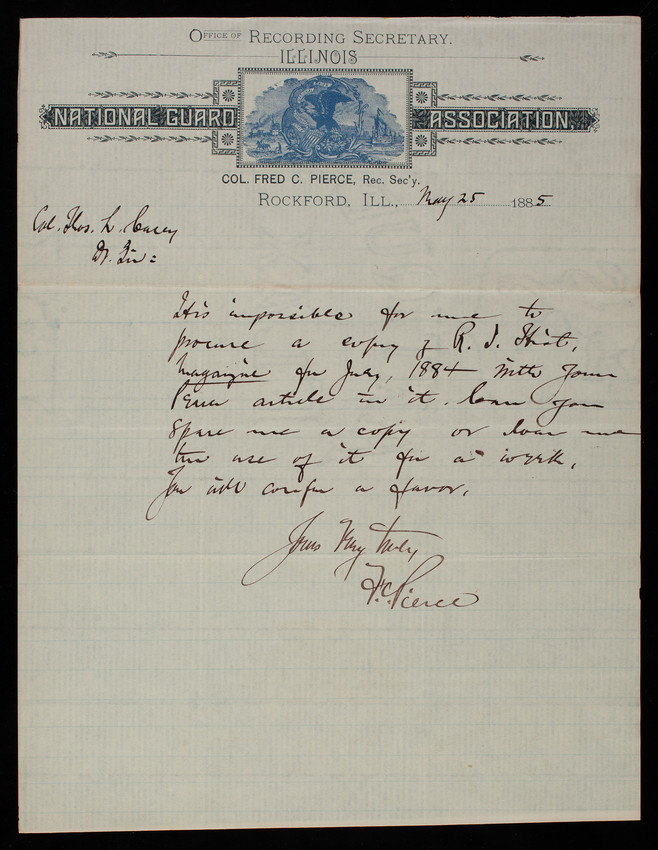 OFFICE OF RECORDING SECRETARY.
ILLINOIS
NATIONAL GUARD ASSOCIATION.
COL. FRED C. PIERCE, Rec. Sec'y.
ROCKFORD, ILL., May 25 1885
Col. Thos. L. Casey
Dr. Sir:
It is impossible for me to
procure a copy of R. I. Hist.
Magazine for July, 1884 with your
article in it. Can you
spare me a copy or loan me
the use of it for a week.
You will confer a favor.
Yours Very truly
F. C. Pierce